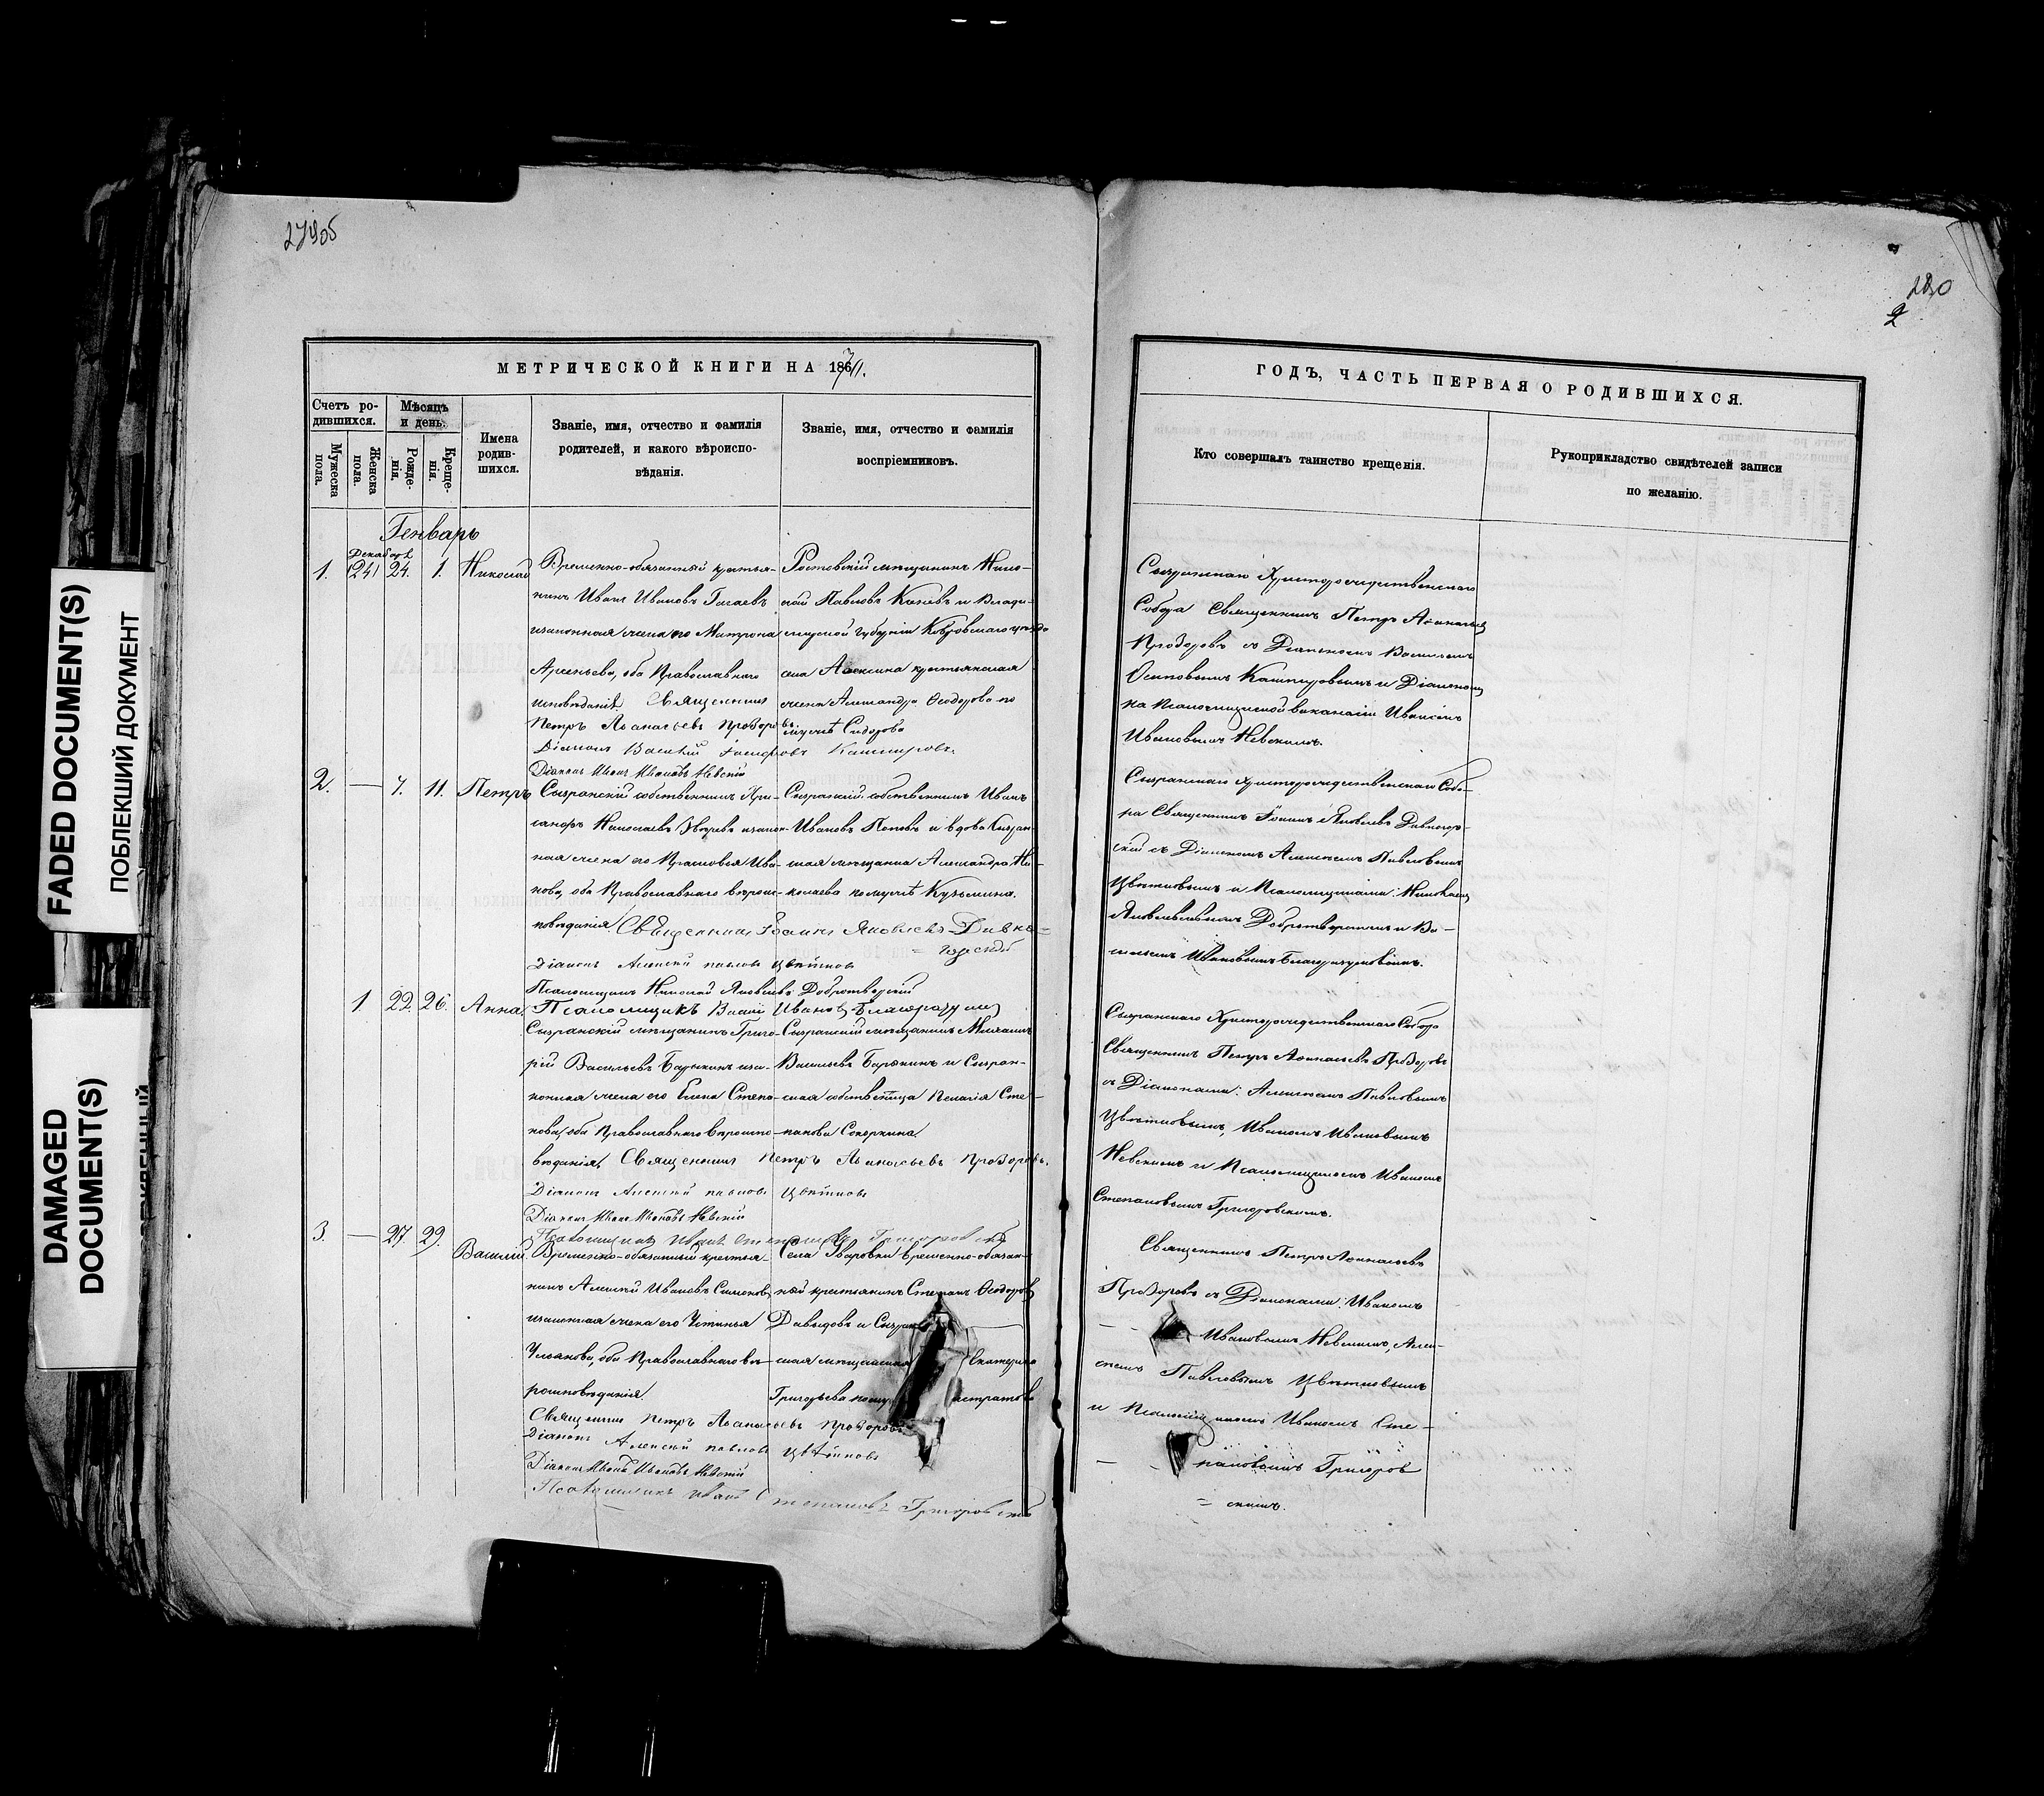 FADED DOCUMENT(S)
ПОБЛЕКШИЙ ДОКУМЕНТ
DAMAGED
DOCUMENT(S)
279об
280
2
МЕТРИЧЕСКОЙ КНИГИ НА 1871.
Счетъ ро-
дившихся.
Мужеска
пола.
Женска
пола.
Мѣсяцъ
и день.
Рожде-
нія.
Креще-
нія.
Имена
родив-
шихся.
Званіе, имя, отчество и фамилія
родителей, и какого вѣроиспо-
вѣданія.
Званіе, имя, отчество и фамилія
воспріемниковъ.
Генварь
Декабря
1. (24) 24. 1. Николай
Временно-обязанный крестья-
нинъ Иванъ Ивановъ
законная жена его Матрона
Арсеньева, оба Православнаго
исповѣданія. Священникъ
Петръ Аѳанасьевъ Прозоровъ
Діаконъ Василій Кашперовъ.
Діаконъ Иванъ Ивановъ Невскій
Ростовскій мѣщанинъ Нико-
лай Павловъ и Влади-
мірской губерніи Ковровскаго уѣзда
села крестьянская
жена Александра Ѳеодорова по
мужѣ Сидорова
2. — 7. 11. Петръ
Сызранскій собственникъ Хри-
санфъ Николаевъ закон-
ная жена его Прасковья Ива-
нова, оба Православнаго вѣроис-
повѣданія. Священникъ Іоаннъ Яковлевъ Дивно-
= горскій
Діаконъ Алексѣй Павловъ Цвѣтковъ
Псаломщикъ Николай Яковлевъ Добротворскій
Псаломщикъ Василій Ивановъ Благоразумов
Сызранскій собственникъ Иванъ
Ивановъ Поповъ и вдова Сызран-
ская мѣщанка Александра Ни-
колаева по мужѣ Кузьмина.
1 22. 26. Анна.
Сызранскій мѣщанинъ Григо-
рій Васильевъ зa-
конная жена его Елена Степа-
нова, оба Православнаго вѣроиспо-
вѣданія. Священникъ Петръ Аѳанасьевъ Прозоровъ.
Діаконъ Алексѣй Павловъ Цвѣтковъ
Діаконъ Иванъ Ивановъ Невскій
Псаломщикъ Иванъ Степановъ Григоровскій
Сызранскій мѣщанинъ Михаилъ
Васильевъ и Сызран-
ская собственница Пелагія Сте-
панова
3. — 27 29. Василій.
Временно-обязанный крестья-
нинъ Алексѣй Ивановъ Симоновъ
законная жена его Устинья
Ульянова, оба Православнаго вѣ-
роисповѣданія.
Священникъ Петръ Аѳанасьевъ Прозоровъ
Діаконъ Алексѣй Павловъ Цвѣтковъ
Діаконъ Иванъ Ивановъ Невскій
Псаломщикъ Иванъ Степановъ Григоровскій
Села Уваровки временно-обязан-
ный крестьянинъ Степанъ Ѳеодоровъ
Давыдовъ и Сызран
ская мѣщанская Екатерина
Григорьева по муж
ГОДЪ, ЧАСТЬ ПЕРВАЯ О РОДИВШИХСЯ.
Кто совершалъ таинство крещенія.
Рукоприкладство свидѣтелей записи
по желанію.
Сызранскаго Христорождественскаго
Собора Священникъ Петръ Аѳанасьев
Прозоровъ съ Діакономъ Василіемъ
Осиповымъ Кашперовымъ и Діакономъ
на псаломщицкой вакансіи Иваномъ
Ивановымъ Невскимъ.
Сызранскаго Христорождественскаго Собо-
ра Священникъ Іоаннъ Яковлевъ Дивногор-
скій съ Діакономъ Алексѣемъ Павловымъ
Цвѣтковымъ и Псаломщиками: Николаемъ
Яковлевымъ Добротворскимъ и Ва-
сильемъ Ивановымъ Благоразумовымъ.
Сызранскаго Христорождественскаго Собора
Священникъ Петръ Аѳанасьевъ Прозоровъ
съ Діаконами: Алексѣемъ Павловымъ
Цвѣтковымъ, Иваномъ Ивановымъ
Невскимъ и Псаломщикомъ Иваномъ
Степановымъ Григоровскимъ.
Священникъ Петръ Аѳанасьевъ
Прозоровъ съ Діаконами: Иваномъ
Ивановымъ Невскимъ, Алек-
сѣемъ Павловымъ Цвѣтковымъ
и Псаломщикомъ Иваномъ Сте-
пановымъ Григоров
= скимъ.